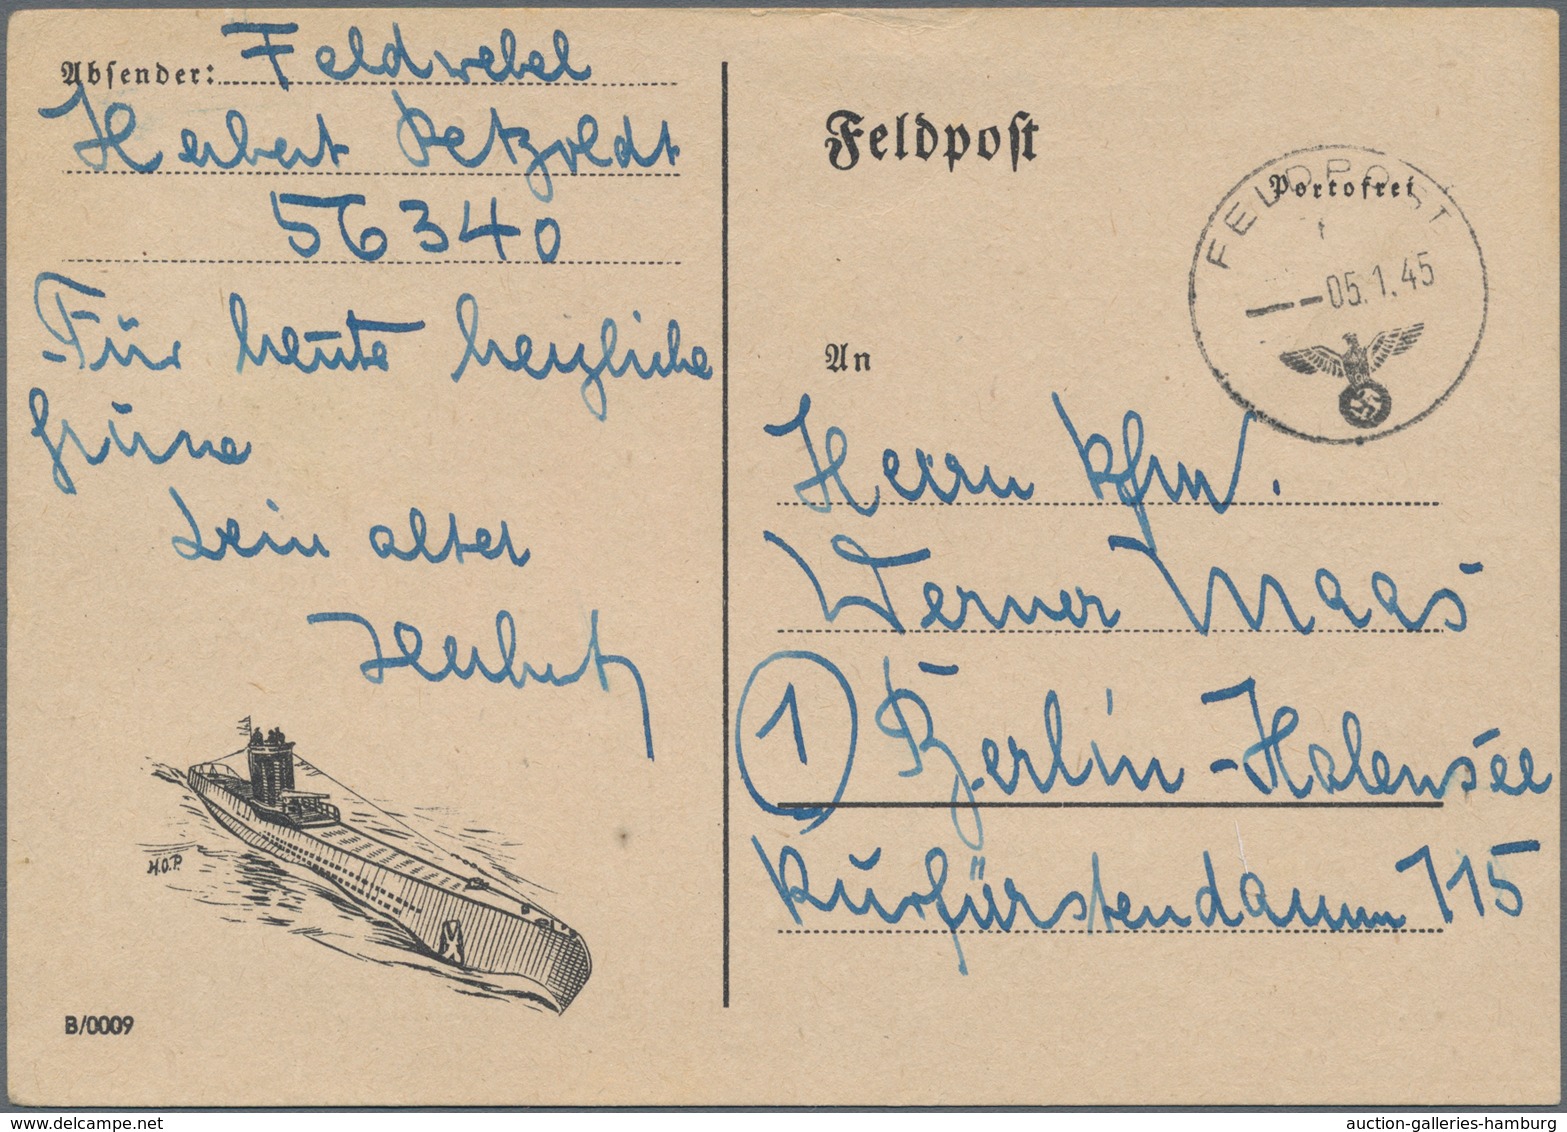 Absender: Feldwebel
Herbert Petzoldt
56340
Für heute herzliche
Grüße
Dein alter
Herbert
H.O.P.
B/0009
Feldpost
Portofrei
FELDPOST
05.1.45
An
Herrn Kfm.
Werner Maas
1 Berlin-Halensee
Kurfürstendamm 115
auction-galleries-hamburg